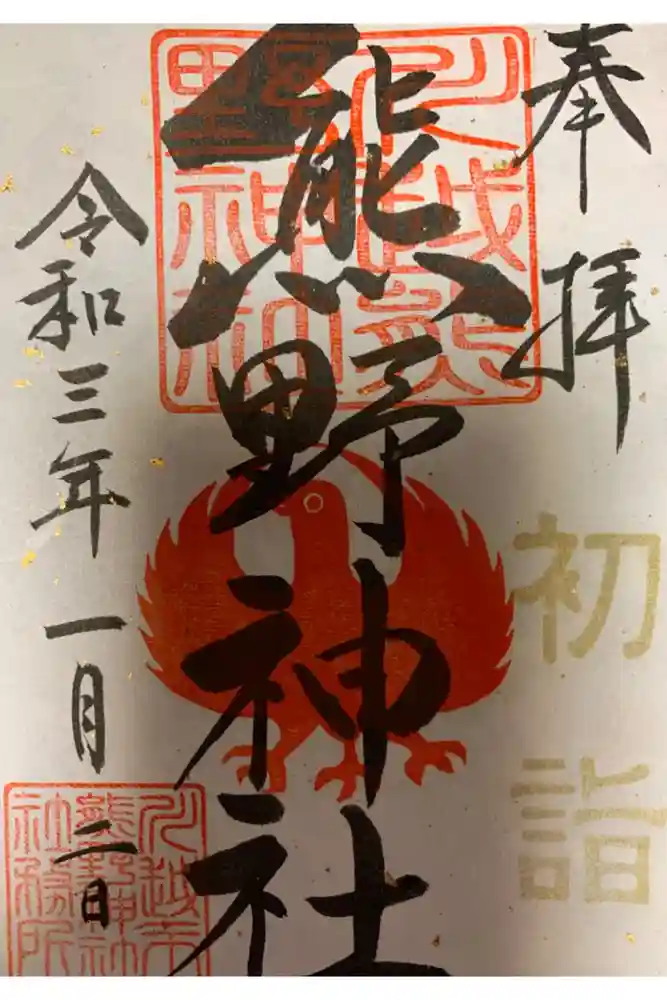 奉拝
初詣
熊野神社
川越熊野神社
令和三年一月二日
川越市
熊野神社
社務所